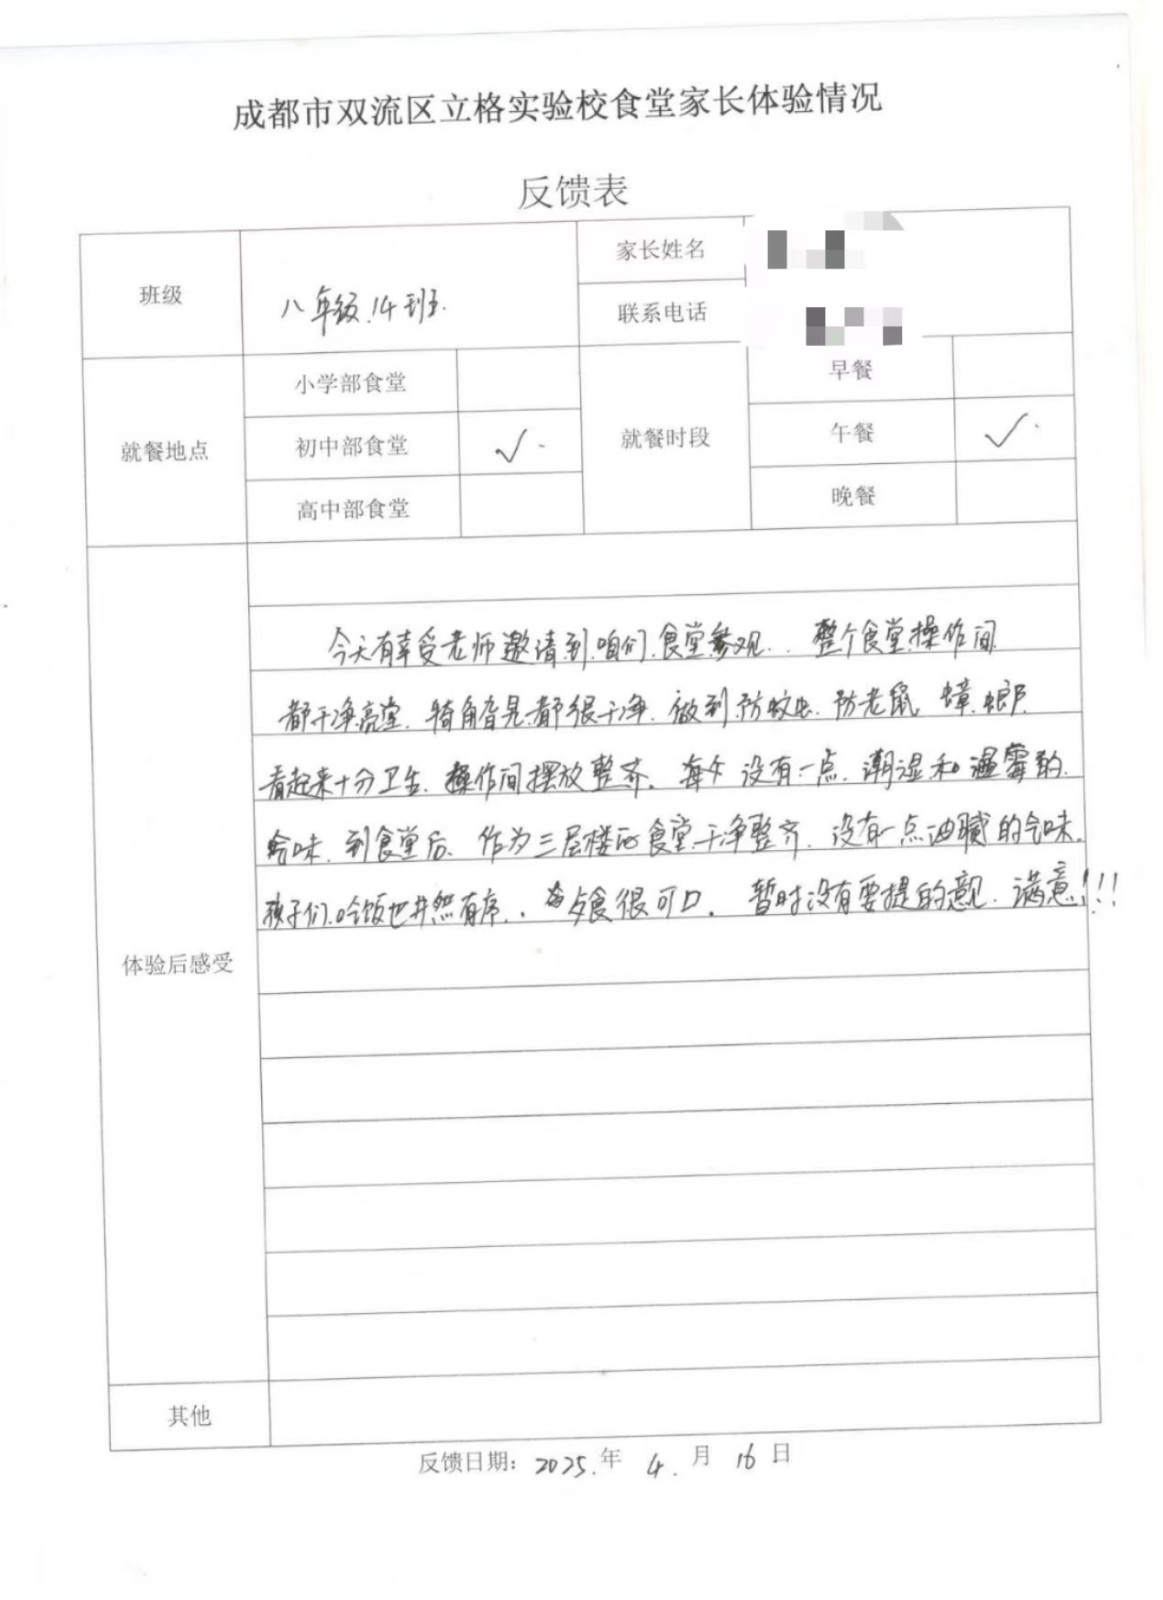 成都市双流区立格实验校食堂家长体验情况
反馈表
班级
八年级.14班.
家长姓名
联系电话
就餐地点
小学部食堂
初中部食堂 ✓
高中部食堂
就餐时段
早餐
午餐 ✓
晚餐
体验后感受
今天有幸受老师邀请到咱们.食堂参观.. 整个食堂操作间
都干净亮堂. 犄角旮旯都很干净. 做到防蚊虫. 防老鼠 蟑螂
看起来十分卫生. 操作间摆放整齐. 没有一点.潮湿和湿霉的.
味. 到食堂后. 作为三层楼的食堂干净整齐. 没有一点油腻的味.
孩子们.吃饭也井然有序.. 食很可口. 暂时没有要提的意见. 满意!!!
其他
反馈日期: 2025.年 4. 月 16 日